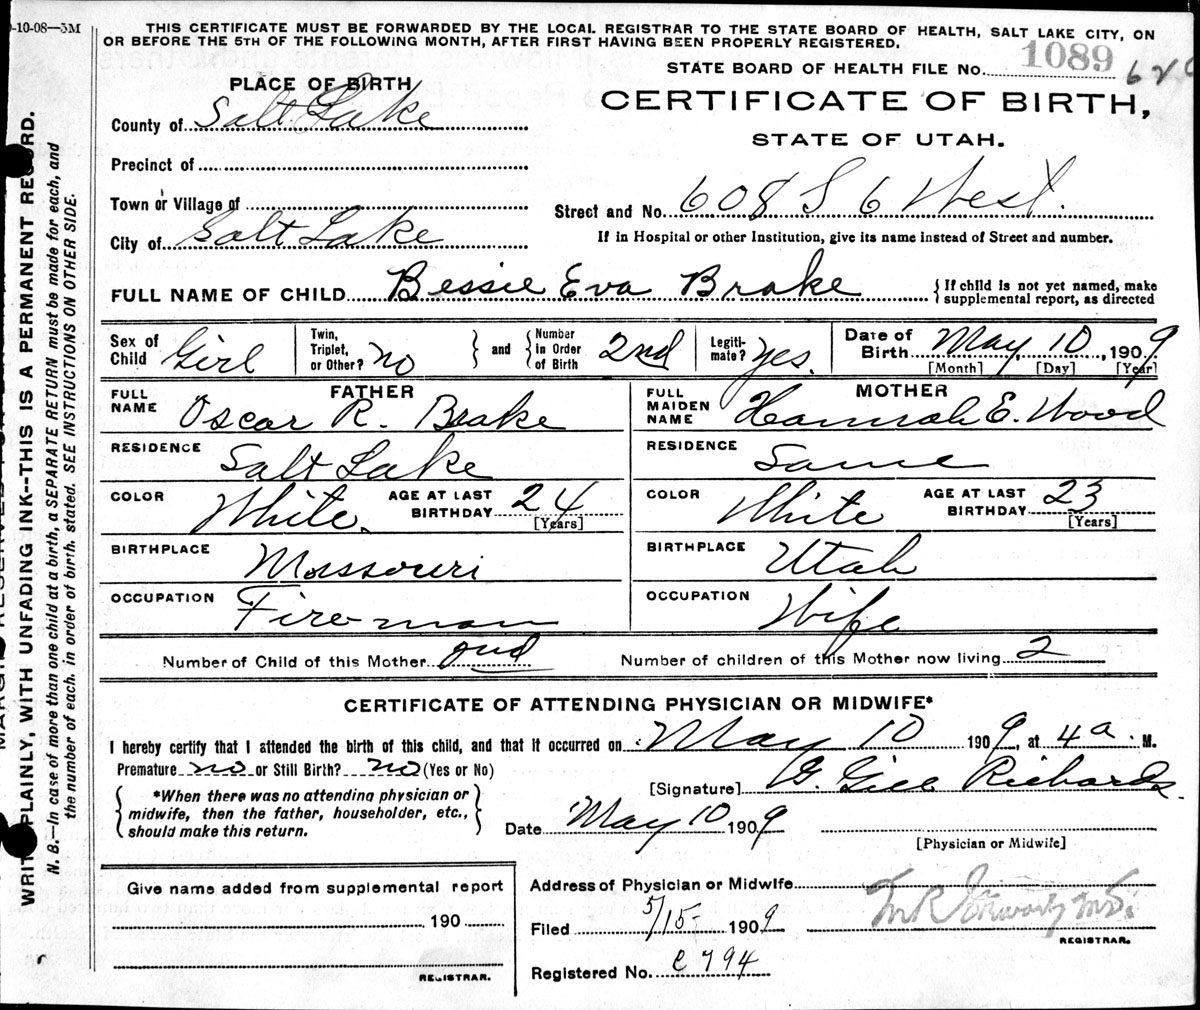 9-10-08—5M
THIS CERTIFICATE MUST BE FORWARDED BY THE LOCAL REGISTRAR TO THE STATE BOARD OF HEALTH, SALT LAKE CITY, ON
OR BEFORE THE 5TH OF THE FOLLOWING MONTH, AFTER FIRST HAVING BEEN PROPERLY REGISTERED.
STATE BOARD OF HEALTH FILE No. 1089
PLACE OF BIRTH
CERTIFICATE OF BIRTH,
STATE OF UTAH.
County of Salt Lake
Precinct of
Town or Village of
City of Salt Lake
Street and No. 608 S 6 West.
If in Hospital or other Institution, give its name instead of Street and number.
FULL NAME OF CHILD Bessie Eva Brake
{ If child is not yet named, make
supplemental report, as directed
Sex of Child Girl
Twin, Triplet, or Other? no } and { Number in Order of Birth 2nd
Legitimate? Yes.
Date of Birth May 10, 1909
[Month] [Day] [Year]
FATHER
FULL NAME Oscar R. Brake
RESIDENCE Salt Lake
COLOR White. AGE AT LAST BIRTHDAY 24 [Years]
BIRTHPLACE Massouri
OCCUPATION Fireman
MOTHER
FULL MAIDEN NAME Hannah E. Wood
RESIDENCE Same
COLOR White AGE AT LAST BIRTHDAY 23 [Years]
BIRTHPLACE Utah
OCCUPATION Wife
Number of Child of this Mother 2nd Number of children of this Mother now living 2
CERTIFICATE OF ATTENDING PHYSICIAN OR MIDWIFE*
I hereby certify that I attended the birth of this child, and that it occurred on May 10 1909, at 4 a. M.
Premature no or Still Birth? no (Yes or No)
{ *When there was no attending physician or
midwife, then the father, householder, etc.,
should make this return. }
[Signature] G. Gill Richards.
Date May 10 1909
[Physician or Midwife]
Give name added from supplemental report
190
REGISTRAR.
Address of Physician or Midwife
Filed 5/15- 1909
REGISTRAR.
Registered No. C 794
WRITE PLAINLY, WITH UNFADING INK—THIS IS A PERMANENT RECORD.
N. B.—In case of more than one child at a birth, a SEPARATE RETURN must be made for each, and
the number of each, in order of birth, stated. SEE INSTRUCTIONS ON OTHER SIDE.